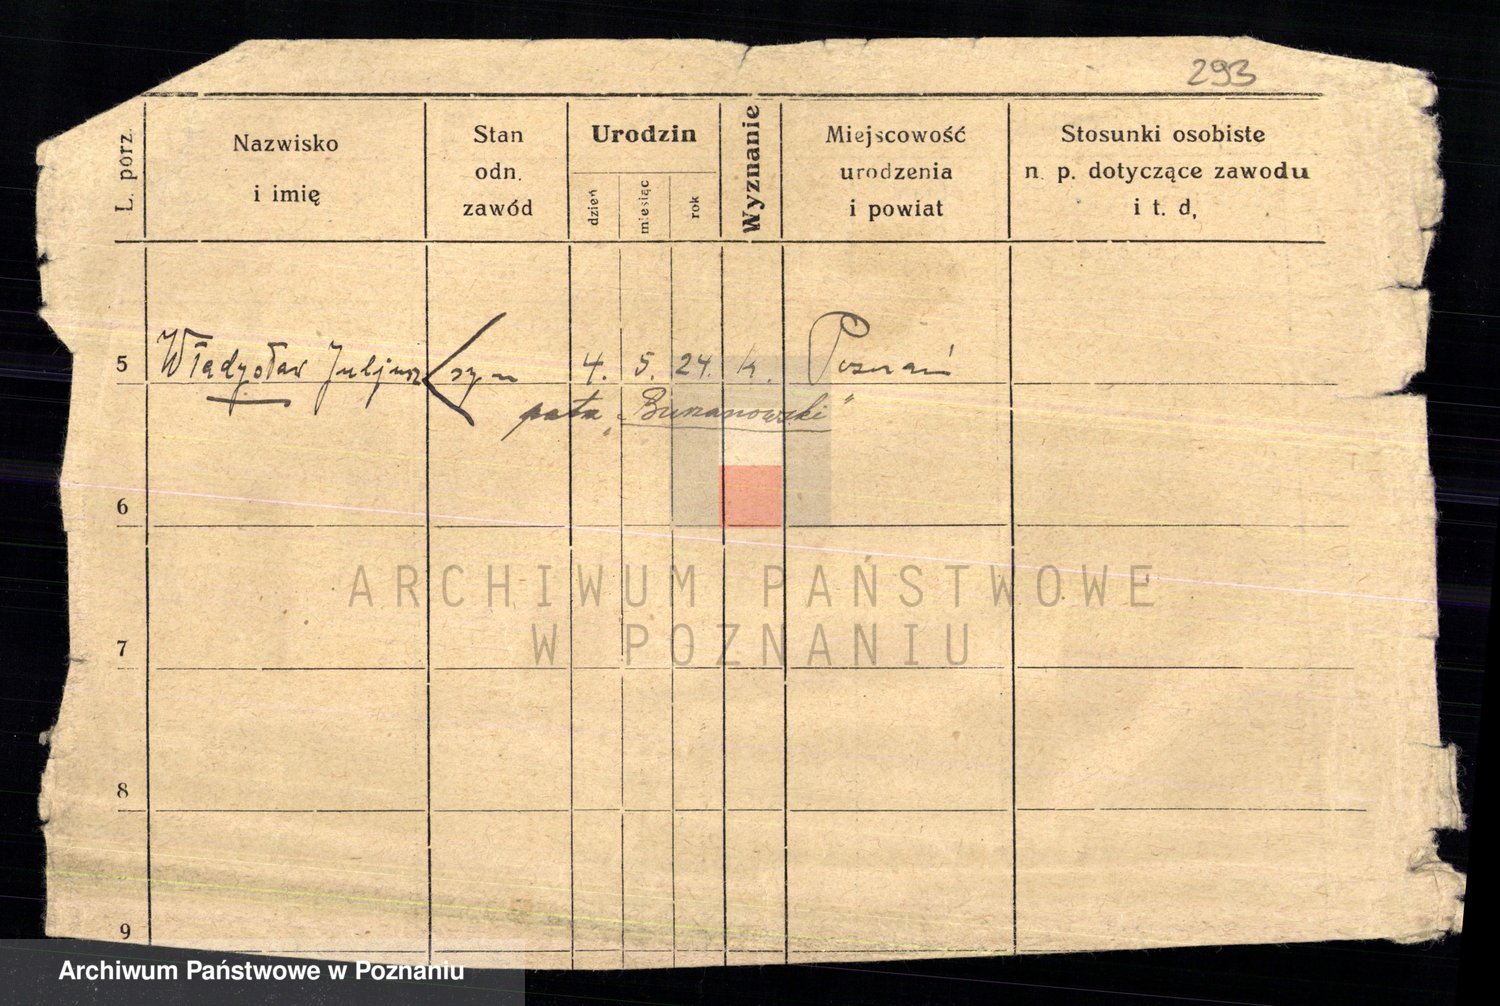 293
L. porz.
Nazwisko
i imię
Stan
odn.
zawód
Urodzin
dzień
miesiąc
rok
Wyznanie
Miejscowość
urodzenia
i powiat
Stosunki osobiste
n. p. dotyczące zawodu
i t. d,
5 Władysław Juljusz syn 4. 5. 24. k. Poznań
"Bursanowski"
6
ARCHIWUM PAŃSTWOWE
W POZNANIU
7
8
9
Archiwum Państwowe w Poznaniu